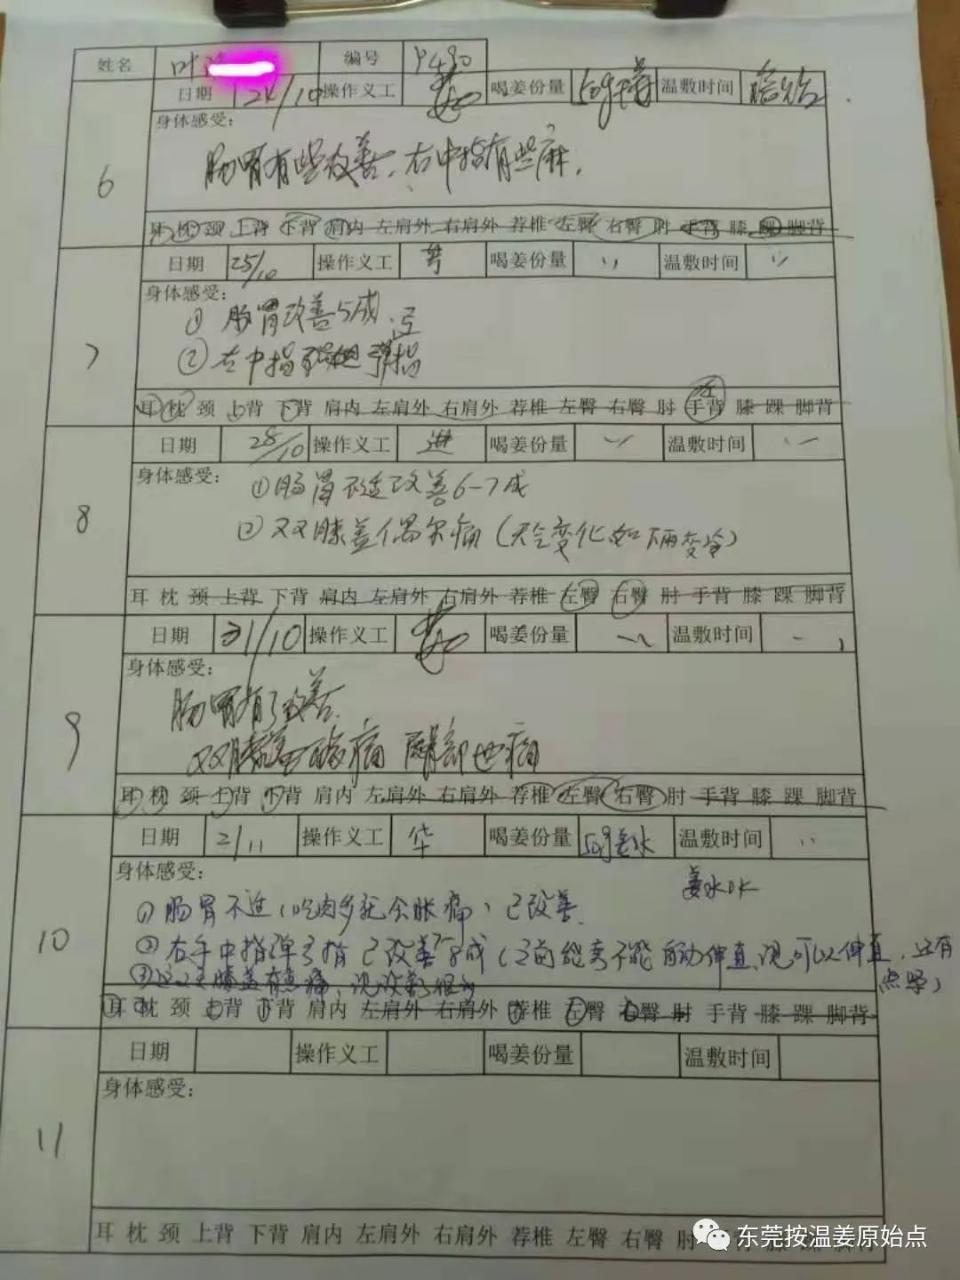 姓名 叶 编号 P490
6 日期 24/10 操作义工 喝姜份量 温敷时间
身体感受:
肠胃有些改善,右中指有些麻,
耳 枕 颈 上背 下背 肩内 左肩外 右肩外 荐椎 左臀 右臀 肘 手背 膝 踝 脚背
日期 25/10 操作义工 喝姜份量 〃 温敷时间 〃
身体感受:
7 ① 肠胃改善5成
② 右中指 弹指
耳 枕 颈 上背 下背 肩内 左肩外 右肩外 荐椎 左臀 右臀 肘 手背 膝 踝 脚背
日期 28/10 操作义工 进 喝姜份量 〃 温敷时间 〃
身体感受:
8 ①肠胃不适改善6-7成
② 双膝盖偶尔痛(天气变化如下雨变冷)
耳 枕 颈 上背 下背 肩内 左肩外 右肩外 荐椎 左臀 右臀 肘 手背 膝 踝 脚背
日期 31/10 操作义工 喝姜份量 〃 温敷时间 〃
身体感受:
9 肠胃有了改善
双膝盖酸痛 臀部也痛
耳 枕 颈 上背 下背 肩内 左肩外 右肩外 荐椎 左臀 右臀 肘 手背 膝 踝 脚背
日期 2/11 操作义工 华 喝姜份量 姜水 温敷时间 〃
身体感受: 姜水OK
10 ① 肠胃不适(吃肉多就会胀痛)已改善
② 右手中指弹弓指已改善7-8成(之前弯不能自动伸直,现可以伸直,还有
点紧)
③ 膝盖有点痛,现改善很多
耳 枕 颈 上背 下背 肩内 左肩外 右肩外 荐椎 左臀 右臀 肘 手背 膝 踝 脚背
日期 操作义工 喝姜份量 温敷时间
身体感受:
11
耳 枕 颈 上背 下背 肩内 左肩外 右肩外 荐椎 左臀 右臀 肘
东莞按温姜原始点